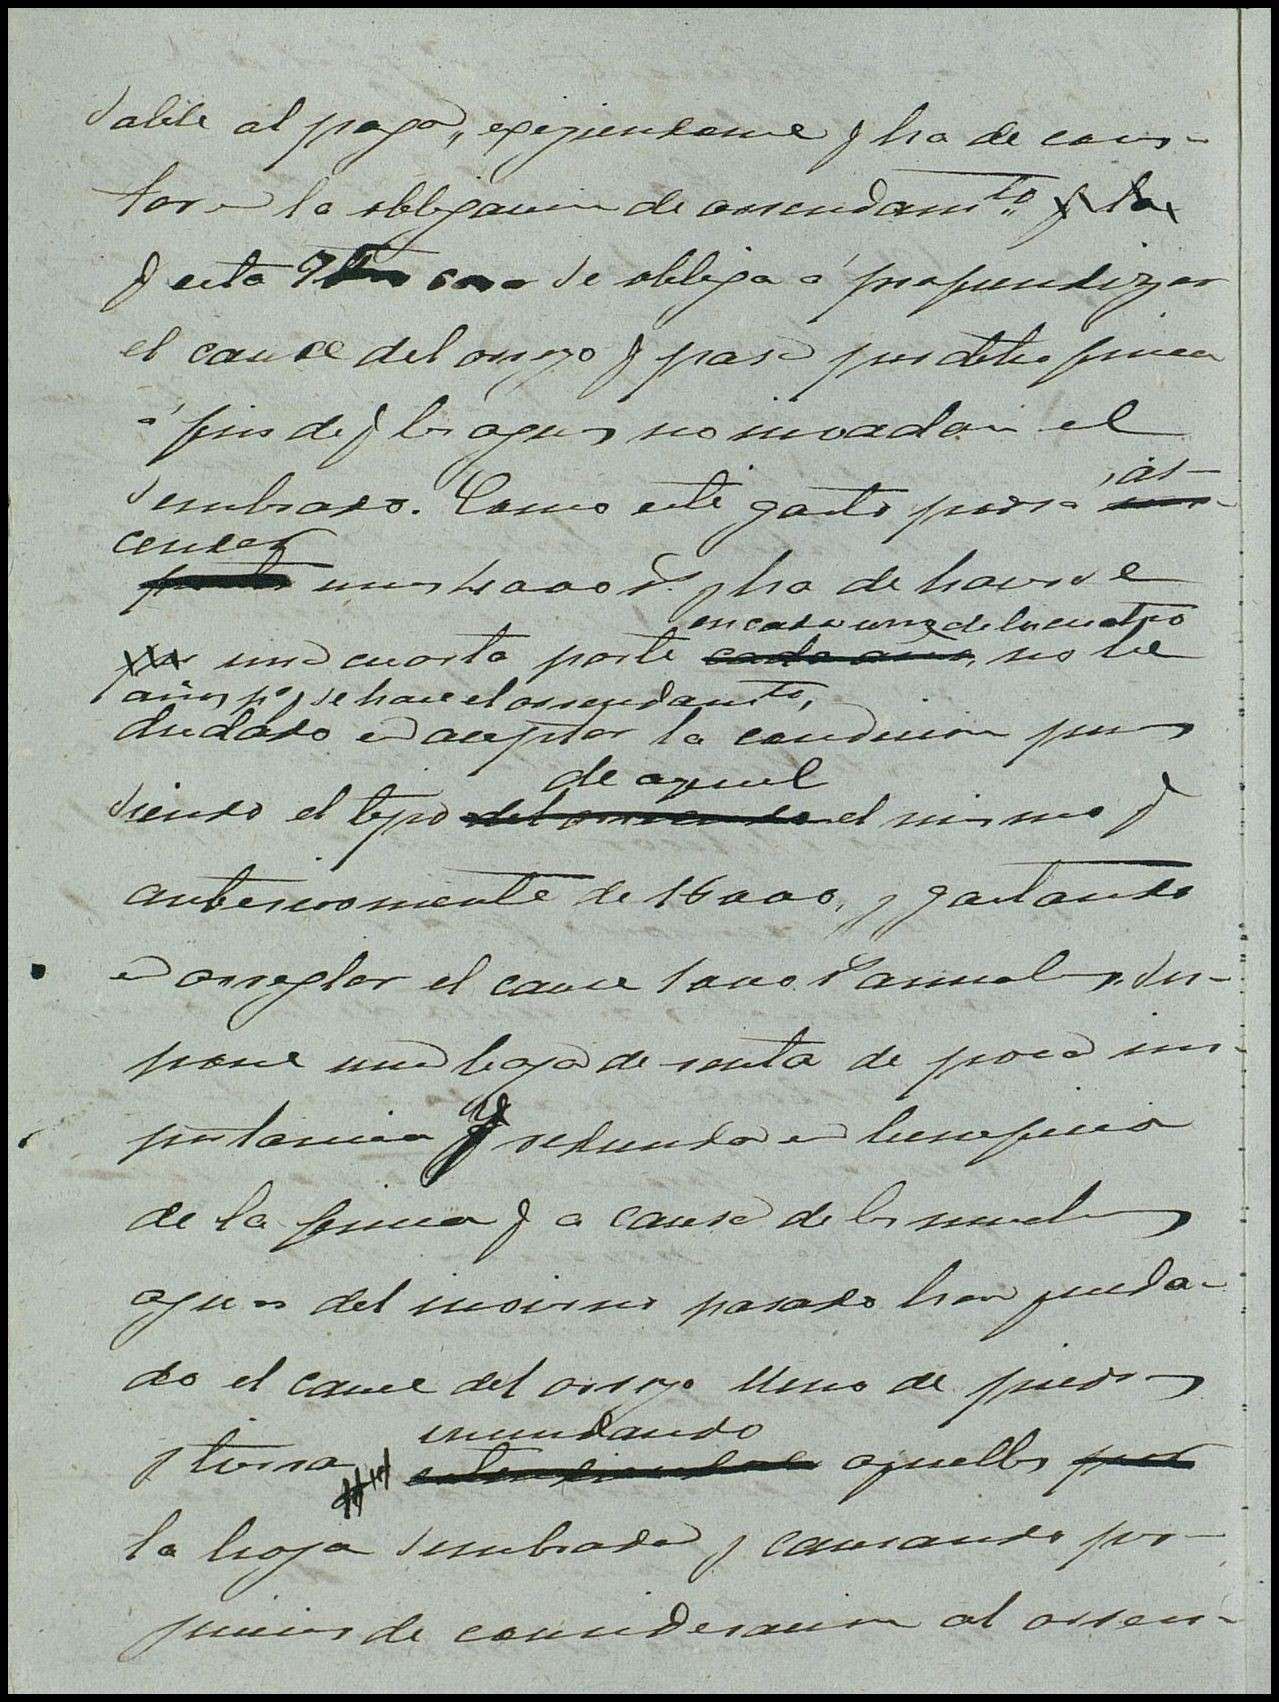 sable al pago, exijiendome q ha de cons-
tar en la obligacion de arrendam.to q la
q esta se obliga á profundizar
el cauce del arroyo q pasa por dicha finca
á fin de q las aguas no invadan el
sembrado. Como este gasto podrá as-
cender
unos 4000 r. y ha de hacerse
en cada uno de los cuatro
por una cuarta parte cada año, no he
años p.a q se hace el arrendam.to,
dudado en aceptar la condicion pues
de aquel
siendo el tipo del arriendo el mismo q
anteriormente de 16000, y gastando
en arreglar el cauce 1000 r anuales, su-
pone una baja de renta de poca im-
portancia q redunda en beneficio
de la finca q a causa de las muchas
aguas del invierno pasado han queda-
do el cauce del arroyo lleno de piedras
inundando
y tierra aquellas por
la hoja sembrada y causando per-
juicios de consideracion al arren-